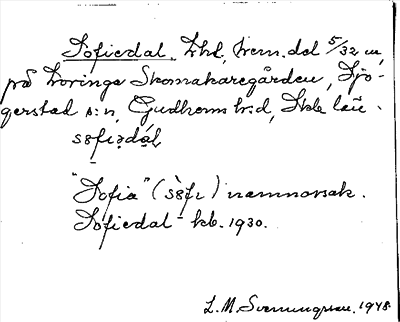 Sofiedal, Lhd, hem. del 5/32 m,
på Loringa Skomakaregården, Sjö-
gerstad s:n, Gudhems h:d, Skb. län.
sɷfiədál
"Sofia" (sɷ̀fı) namnorsak.
Sofiedal - kb. 1930.
L. M. Svenungsson. 1948